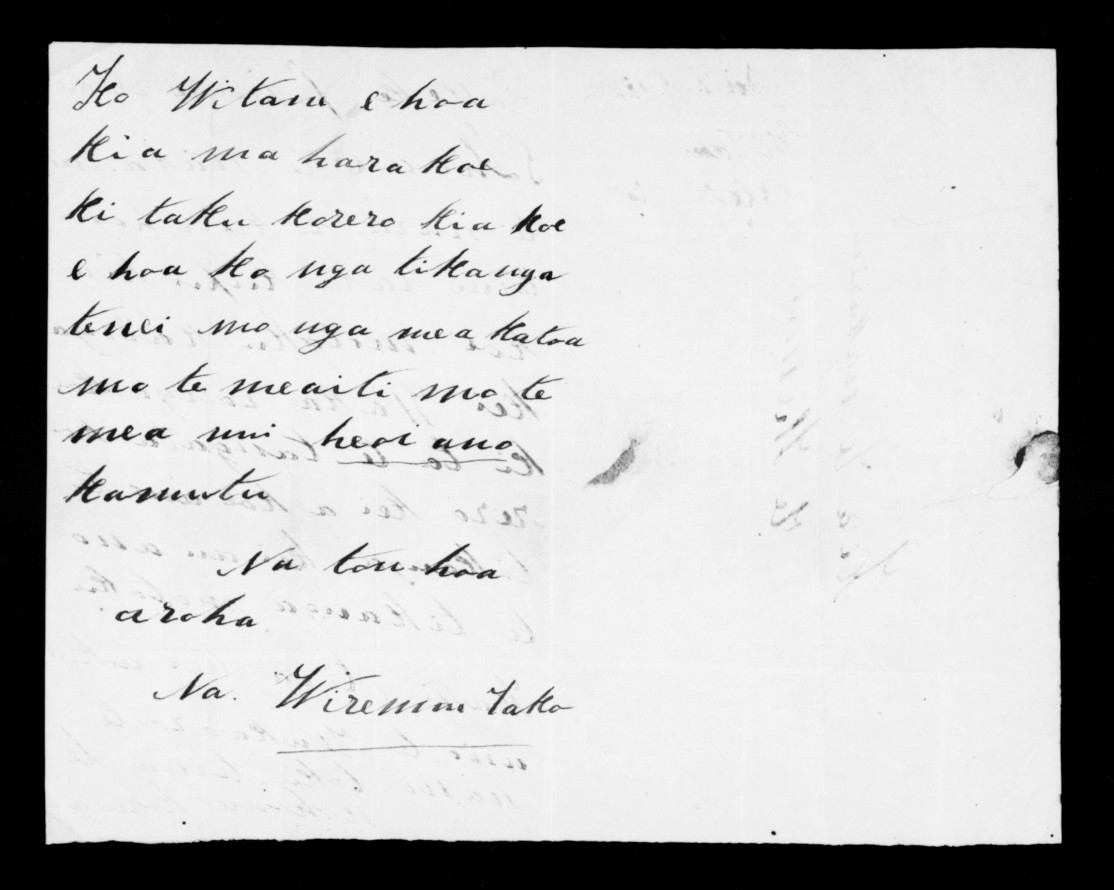 Ko Witanu e hoa
kia ma hara koe
ki taku korero kia koe
e hoa ko nga tikanga
tenei mo nga mea katoa
mo te meaiti mo te
mea nui heoi ano
kamutu
Na tou hoa
aroha
Na. Wiremu Tako